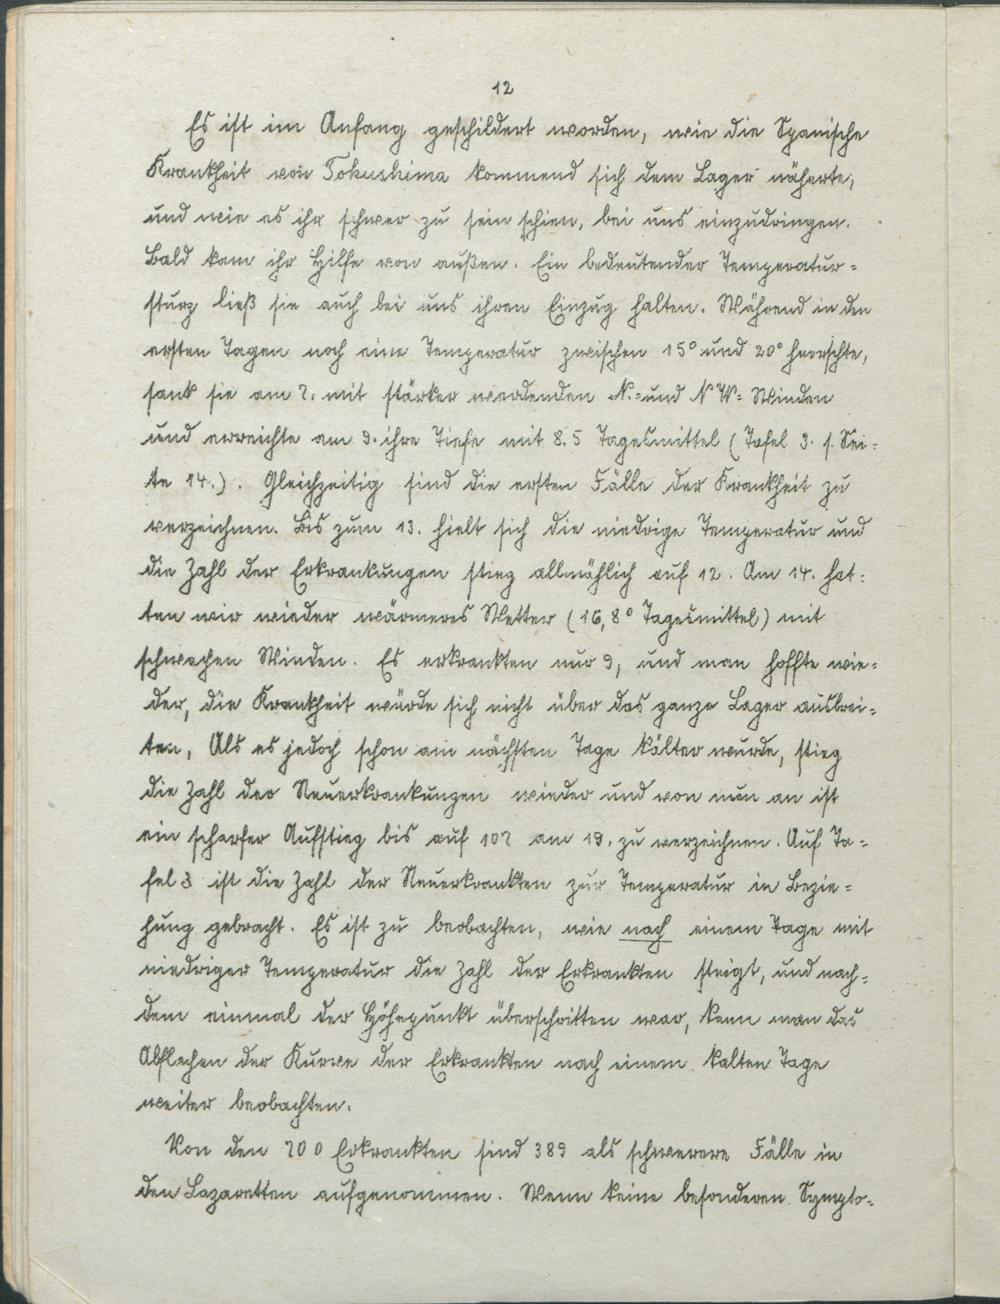 12
Es ist im Anfang geschildert worden, wie die Spanische
Krankheit von Tokushima kommend sich dem Lager näherte,
und wie es ihr schwer zu sein schien, bei uns einzudringen.
Bald kam ihr Hilfe von außen. Ein bedeutender Temperatur-
sturz ließ sie auch bei uns ihren Einzug halten. Während in den
ersten Tagen noch eine Temperatur zwischen 15° und 20° herrschte,
sank sie am 7. mit stärker werdenden N.- und N W- Winden
und erreichte am 9. ihre Tiefe mit 8.5 Tagesmittel (Tafel 3. s. Sei-
te 14.). Gleichzeitig sind die ersten Fälle der Krankheit zu
verzeichnen. Bis zum 13. hielt sich die niedrige Temperatur und
die Zahl der Erkrankungen stieg allmählich auf 12. Am 14. hat-
ten wir wieder wärmeres Wetter (16,8° Tagesmittel) mit
schwachen Winden. Es erkrankten nur 9, und man hoffte wie-
der, die Krankheit würde sich nicht über das ganze Lager ausbrei-
ten, Als es jedoch schon am nächsten Tage kälter wurde, stieg
die Zahl der Neuerkrankungen wieder und von nun an ist
ein scharfer Aufstieg bis auf 107 am 19. zu verzeichnen. Auf Ta-
fel 3 ist die Zahl der Neuerkrankten zur Temperatur in Bezie-
hung gebracht. Es ist zu beobachten, wie nach einem Tage mit
niedriger Temperatur die Zahl der Erkrankten steigt, und nach-
dem einmal der Höhepunkt überschritten war, kann man das
Abflachen der Kurve der Erkrankten nach einem kalten Tage
weiter beobachten.
Von den 700 Erkrankten sind 389 als schwerere Fälle in
den Lazaretten aufgenommen. Wenn keine besonderen Sympto-